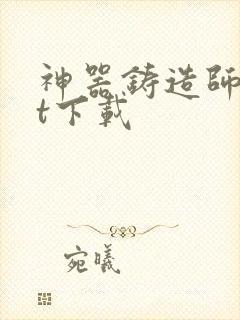 神器鑄造師
t下載
宛曦